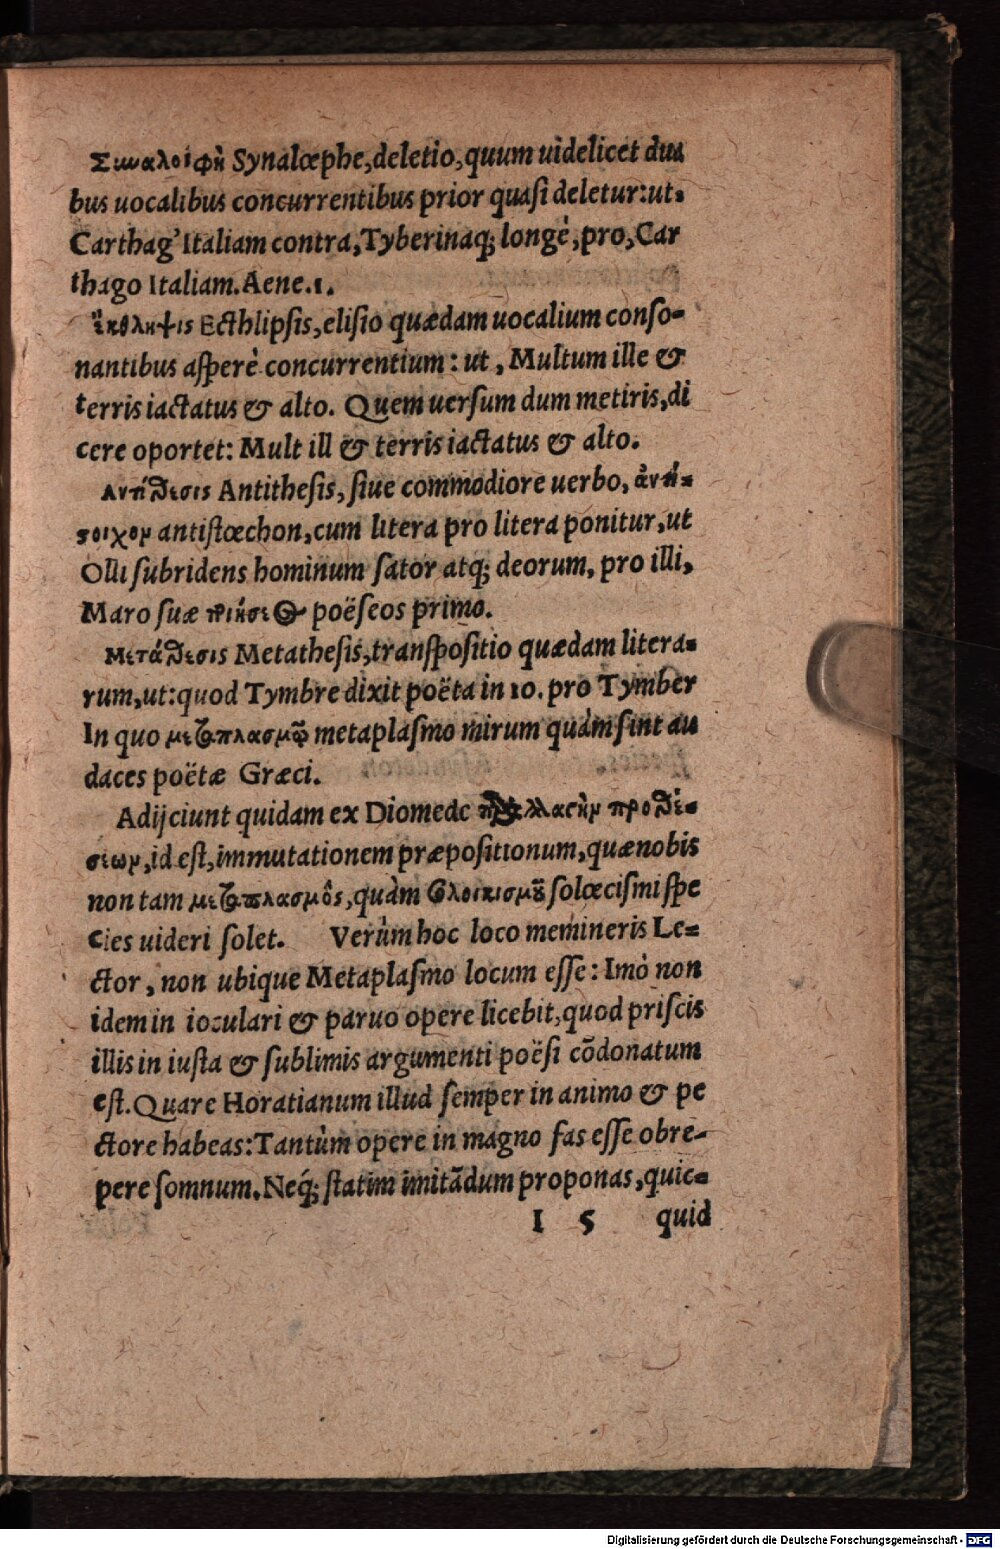 Συναλοιφὴ Synalœphe, deletio, quum uidelicet dua
bus uocalibus concurrentibus prior quaſi deletur: ut.
Carthag' Italiam contra, Tyberinaq; longè, pro, Car
thago Italiam. Aene.1.
ἔκθλιψις Ecthlipſis, eliſio quædam uocalium conſo-
nantibus aſperè concurrentium: ut, Multum ille &
terris iactatus & alto. Quem uerſum dum metiris, di
cere oportet: Mult ill & terris iactatus & alto.
Αντίθεσις Antitheſis, ſiue commodiore uerbo, ἀντί-
ςοιχον antiſtœchon, cum litera pro litera ponitur, ut
Olli ſubridens hominum ſator atq; deorum, pro illi,
Maro ſuæ ποιήσεως poëſeos primo.
Μετάθεσις Metatheſis, tranſpoſitio quædam litera-
rum, ut: quod Tymbre dixit poëta in 10. pro Tymber
In quo μεταπλασμῷ metaplaſmo mirum quàm ſint au
daces poëtæ Græci.
Adijciunt quidam ex Diomede παραλλαγὴν προθέ-
σεων, id est, immutationem præpoſitionum, quæ nobis
non tam μεταπλασμὸς, quàm σολοικισμοῦ ſolœciſmi ſpe
cies uideri ſolet. Verùm hoc loco memineris Le-
ctor, non ubique Metaplaſmo locum eſſe: Imò non
idem in ioculari & paruo opere licebit, quod priſcis
illis in iuſta & ſublimis argumenti poëſi cōdonatum
eſt. Quare Horatianum illud ſemper in animo & pe
ctore habeas: Tantùm opere in magno fas eſſe obre-
pere ſomnum. Neq́; ſtatim imitādum proponas, quic-
I 5 quid
Digitalisierung gefördert durch die Deutsche Forschungsgemeinschaft - DFG